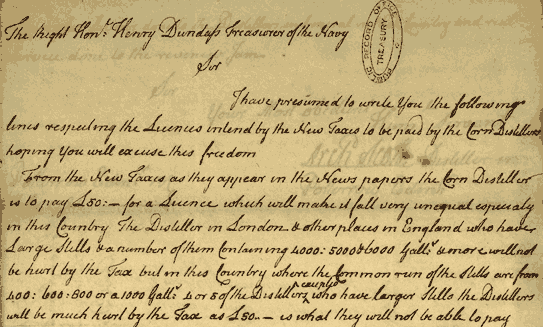 The Right Honl. Henry Dundass Treasurer of the Navy
PUBLIC RECORD OFFICE
TREASURY
Sir
I have presumed to write You the following
lines respecting the Licences intend by the New Taxes to be paid by the Corn Distillers
hoping You will excuse this freedom
From the New Taxes as they appear in the News papers the Corn Distiller
is to pay £50:— for a Licence which will make it fall very unequal especialy
in this Country The Distiller in London & other places in England who have
Large Stills & a number of them Containing 4000: 5000 & 6000 Galls. & more will not
be hurt by the Tax but in this Country where the Common run of the Stills are from
400: 600: 800 or a 1000 Galls. 4 or 5 of the Distillers excepted who have larger Stills the Distillers
will be much hurt by the Tax as £50— is what they will not be able to pay